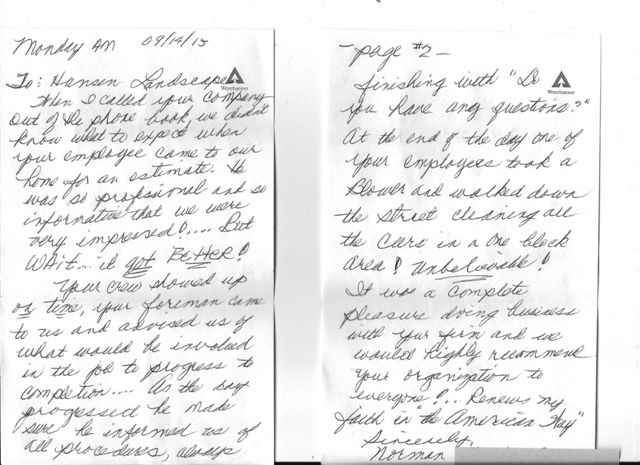 Monday AM 09/14/15
To: Hansen Landscape
Weyerhaeuser
When I called your company
out of the phone book, we didn't
know what to expect when
your employee came to our
home for an estimate. He
was so professional and so
informative that we were
very impressed!.... But
WAit... it got BetteR!
Your crew showed up
on time, your foreman came
to us and advised us of
what would be involved
in the job to progress to
completion.... As the day
progressed he made
sure he informed us of
all procedures, always
- page #2 -
finishing with "Do
Weyerhaeuser
you have any questions?"
At the end of the day one of
your employees took a
Blower and walked down
the street cleaning all
the Cars in a one block
area! Unbelievable!
It was a complete
pleasure doing business
with your firm and we
would highly recommend
your organization to
everyone!... Renews my
faith in "the American Way"
Sincerely,
Norman